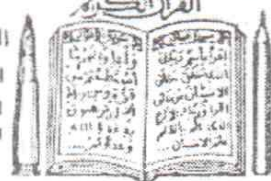 القرآن الكريم
اقرأ باسم ربك
الذي خلق خلق
الانسان من علق
اقرأ وربك الأكرم
الذي علم بالقلم
علم الانسان
وأعدوا لهم ما
استطعتم من
قوة ومن رباط
الخيل ترهبون
به عدو الله
وعدوكم